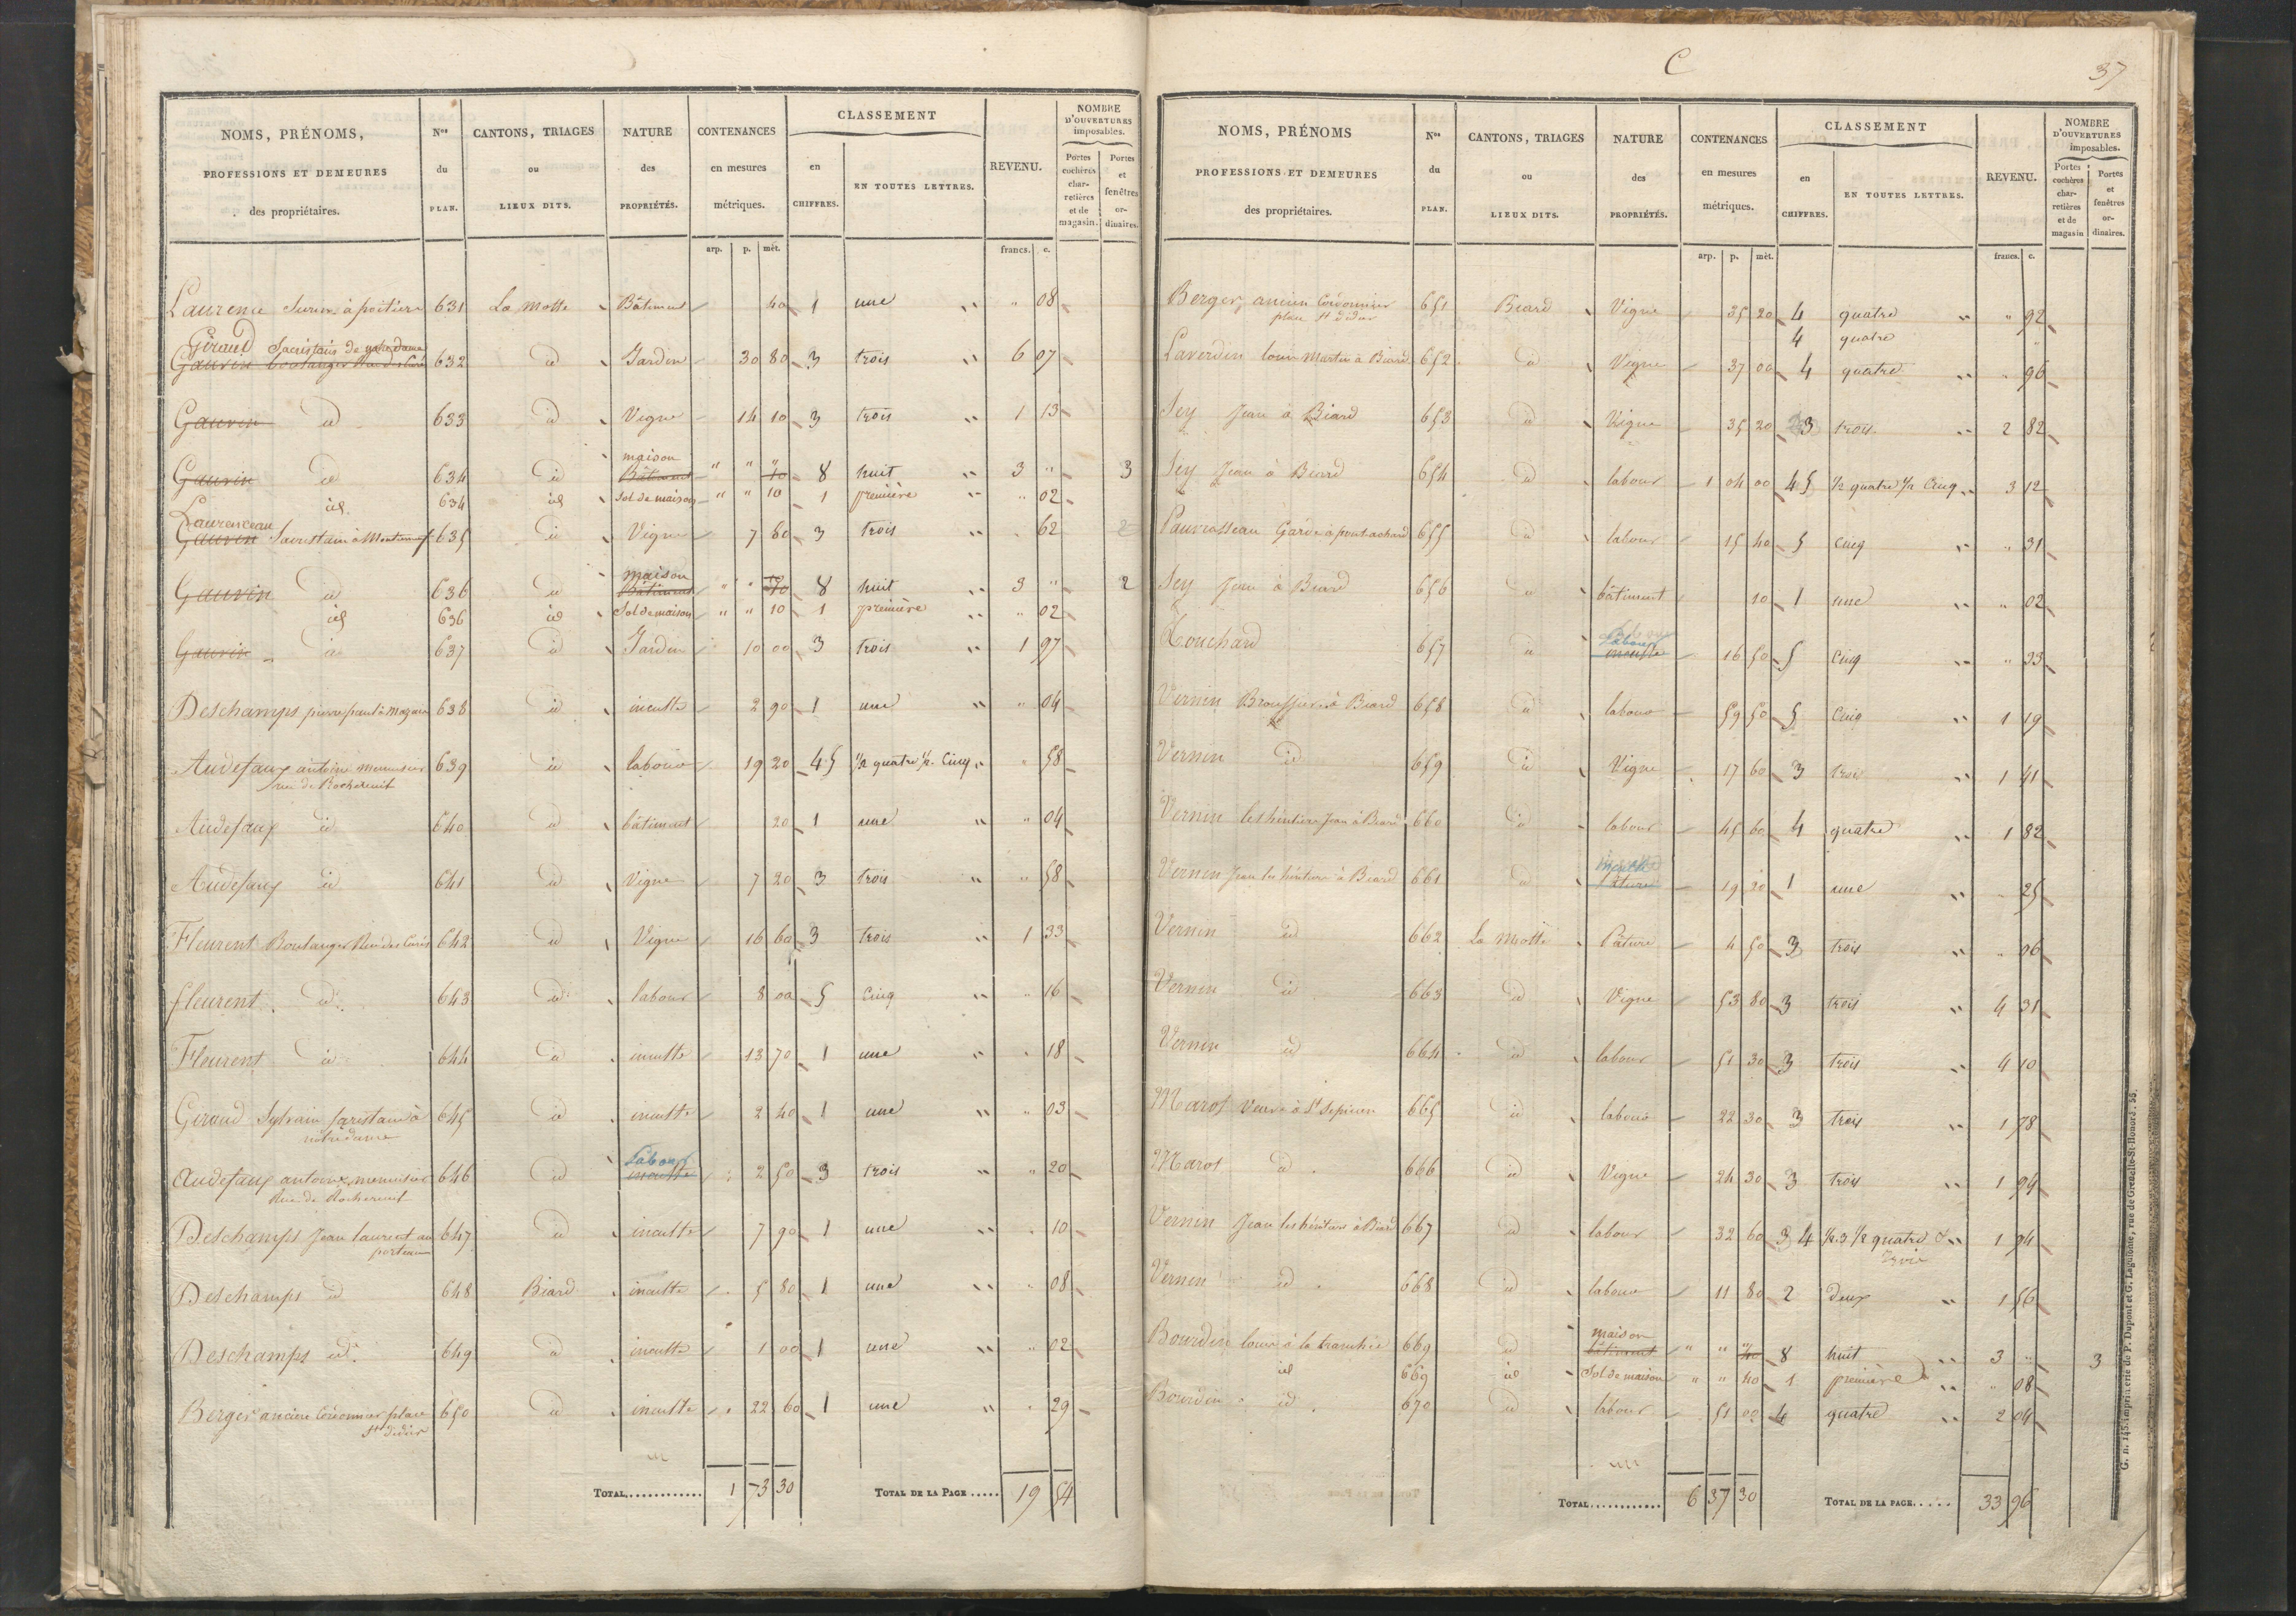 NOMS, PRÉNOMS, PROFESSIONS ET DEMEURES des propriétaires. | Nos du PLAN. | CANTONS, TRIAGES ou LIEUX DITS. | NATURE des PROPRIÉTÉS. | CONTENANCES en mesures métriques. | CLASSEMENT en CHIFFRES. | EN TOUTES LETTRES. | REVENU. | NOMBRE D'OUVERTURES imposables. Portes cochères charretières et de magasin. | Portes et fenêtres ordinaires.
arp. p. mèt. francs. c.
Laurence à poitiers 631 La Motte Bâtiment 40 1 une " 08
Giraud Sacristain de notre dame
Gauvin boulanger Rue des Curés 632 id Jardin 30 80 3 trois 6 07
Gauvin id 633 id Vigne 14 10 3 trois 1 13
maison
Gauvin id 634 id Bâtiment " " 10 8 huit 3 " 3
id 634 id Sol de maison " " 10 1 première " 02
Laurenceau
Gauvin Sacristain à 635 id Vigne 7 80 3 trois " 62 2
maison
Gauvin id 636 id Bâtiment " " 10 8 huit 3 " 2
id 636 id Sol de maison " " 10 1 première " 02
Gauvin id 637 id Jardin 10 00 3 trois 1 97
Deschamps pierre paul à 638 id inculte 2 90 1 une " 04
Audefaux antoine menuisier 639 id labour 19 20 4 5 1/2 quatre 1/2 Cinq " 58
rue de Rochereuil
Audefaux id 640 id bâtiment 20 1 une " 04
Audefaux id 641 id Vigne 7 20 3 trois " 58
Fleurent Boulanger Rue des Curés 642 id Vigne 16 60 3 trois 1 33
fleurent id 643 id labour 8 00 5 Cinq " 16
Fleurent id 644 id inculte 13 70 1 une " 18
Giraud Sylvain Sacristain à 645 id inculte 2 40 1 une " 03
notre dame
Labour
Audefaux antoine menuisier 646 id inculte 2 50 3 trois " 20
Rue de Rochereuil
Deschamps Jean laurent au 647 id inculte 7 90 1 une " 10
Deschamps id 648 Biard inculte 5 80 1 une " 08
Deschamps id. 649 id inculte 1 00 1 une " 02
Berger ancien Cordonnier place 650 id inculte 22 60 1 une " 29
St didier
TOTAL............ 1 73 30 TOTAL DE LA PAGE ..... 19 54
C
37
NOMS, PRÉNOMS PROFESSIONS ET DEMEURES des propriétaires. | Nos du PLAN. | CANTONS, TRIAGES ou LIEUX DITS. | NATURE des PROPRIÉTÉS. | CONTENANCES en mesures métriques. | CLASSEMENT en CHIFFRES. | EN TOUTES LETTRES. | REVENU. | NOMBRE D'OUVERTURES imposables. Portes cochères charretières et de magasin | Portes et fenêtres ordinaires.
arp. p. mèt. francs. c.
Berger, ancien Cordonnier 651 Biard Vigne 35 20 4 quatre " 92
place St didier
4 quatre
Laverdin louis Martin à Biard 652 id Vigne 37 00 4 quatre " 96
Sey Jean à Biard 653 id Vigne 35 20 3 trois 2 82
Sey Jean à Biard 654 id labour 1 04 00 4 5 1/2 quatre 1/2 Cinq 3 12
Pauvrasseau Garde à pont achard 655 id labour 15 40 5 Cinq " 31
Sey Jean à Biard 656 id bâtiment 10 1 une " 02
Labour
Touchard 657 id inculte 16 50 5 Cinq " 33
Vernin à Biard 658 id labour 59 50 5 Cinq 1 19
Vernin id 659 id Vigne 17 60 3 trois 1 41
Vernin les héritiers Jean à Biard 660 id labour 45 60 4 quatre 1 82
Vernin Jean les héritiers à Biard 661 id Pâture 19 20 1 une " 25
Vernin id 662 La Motte Pâture 4 50 3 trois " 06
Vernin id 663 id Vigne 53 80 3 trois 4 31
Vernin id 664 id labour 51 30 3 trois 4 10
Marot Veuve à St 665 id labour 22 30 3 trois 1 78
Marot id 666 id Vigne 24 30 3 trois 1 94
Vernin Jean les héritiers à Biard 667 id labour 32 60 3 4 1/2 3 1/2 quatre 1 94
trois
Vernin id 668 id labour 11 80 2 deux 1 56
maison
Bourdin louis à la tranchée 669 id bâtiment " " 40 8 huit 3 " 3
id 669 id Sol de maison " " 40 1 première " 08
Bourdin id 670 id labour 51 00 4 quatre 2 04
TOTAL............ 6 37 30 TOTAL DE LA PAGE..... 33 96
G. n. 145. Imprimerie de P. Dupont et G. Laguionie, rue de Grenelle-St-Honoré, 55.